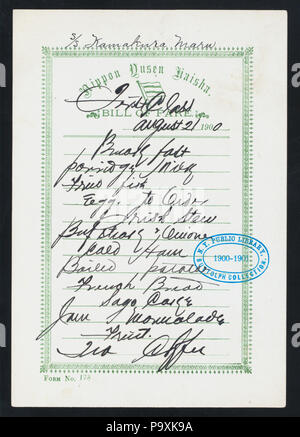 3/S Kamakura Maru
Nippon Yusen Kaisha.
First Class
BILL OF FARE
August 21 1900
Breakfast
porridge Milk
Fried fish
Eggs to Order
Irish Stew
Beefsteak & Onions
Cold Ham
Boiled potatoes
French Bread
Sago Cakes
Jam Marmalade
Fruit.
Tea Coffee
N.Y. PUBLIC LIBRARY
1900-1901
BUTTOLPH COLLECTION.
FORM NO. 178
alamy
Image ID: P9XK9A
www.alamy.com